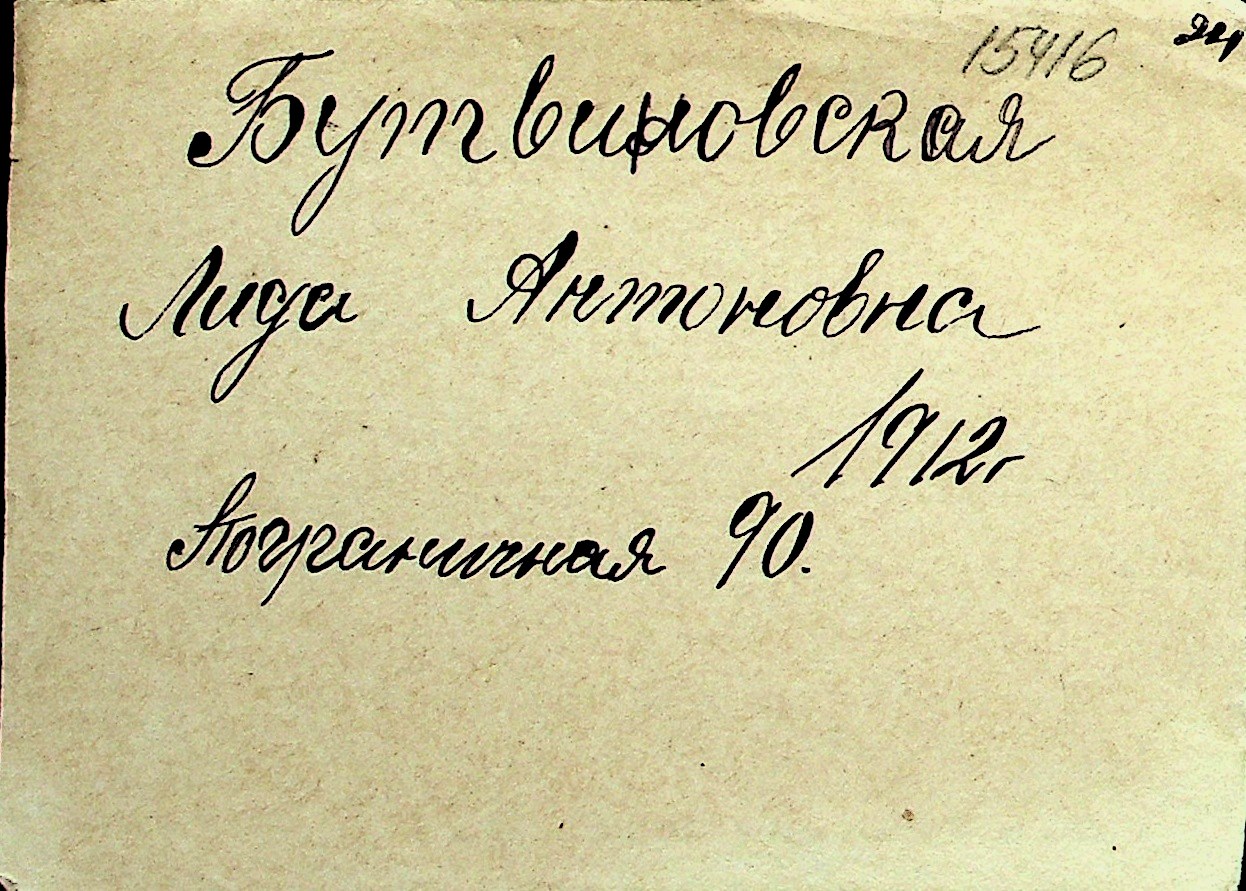 15416
Бутвиловская
Лида Антоновна
1912г
Пограничная 90.